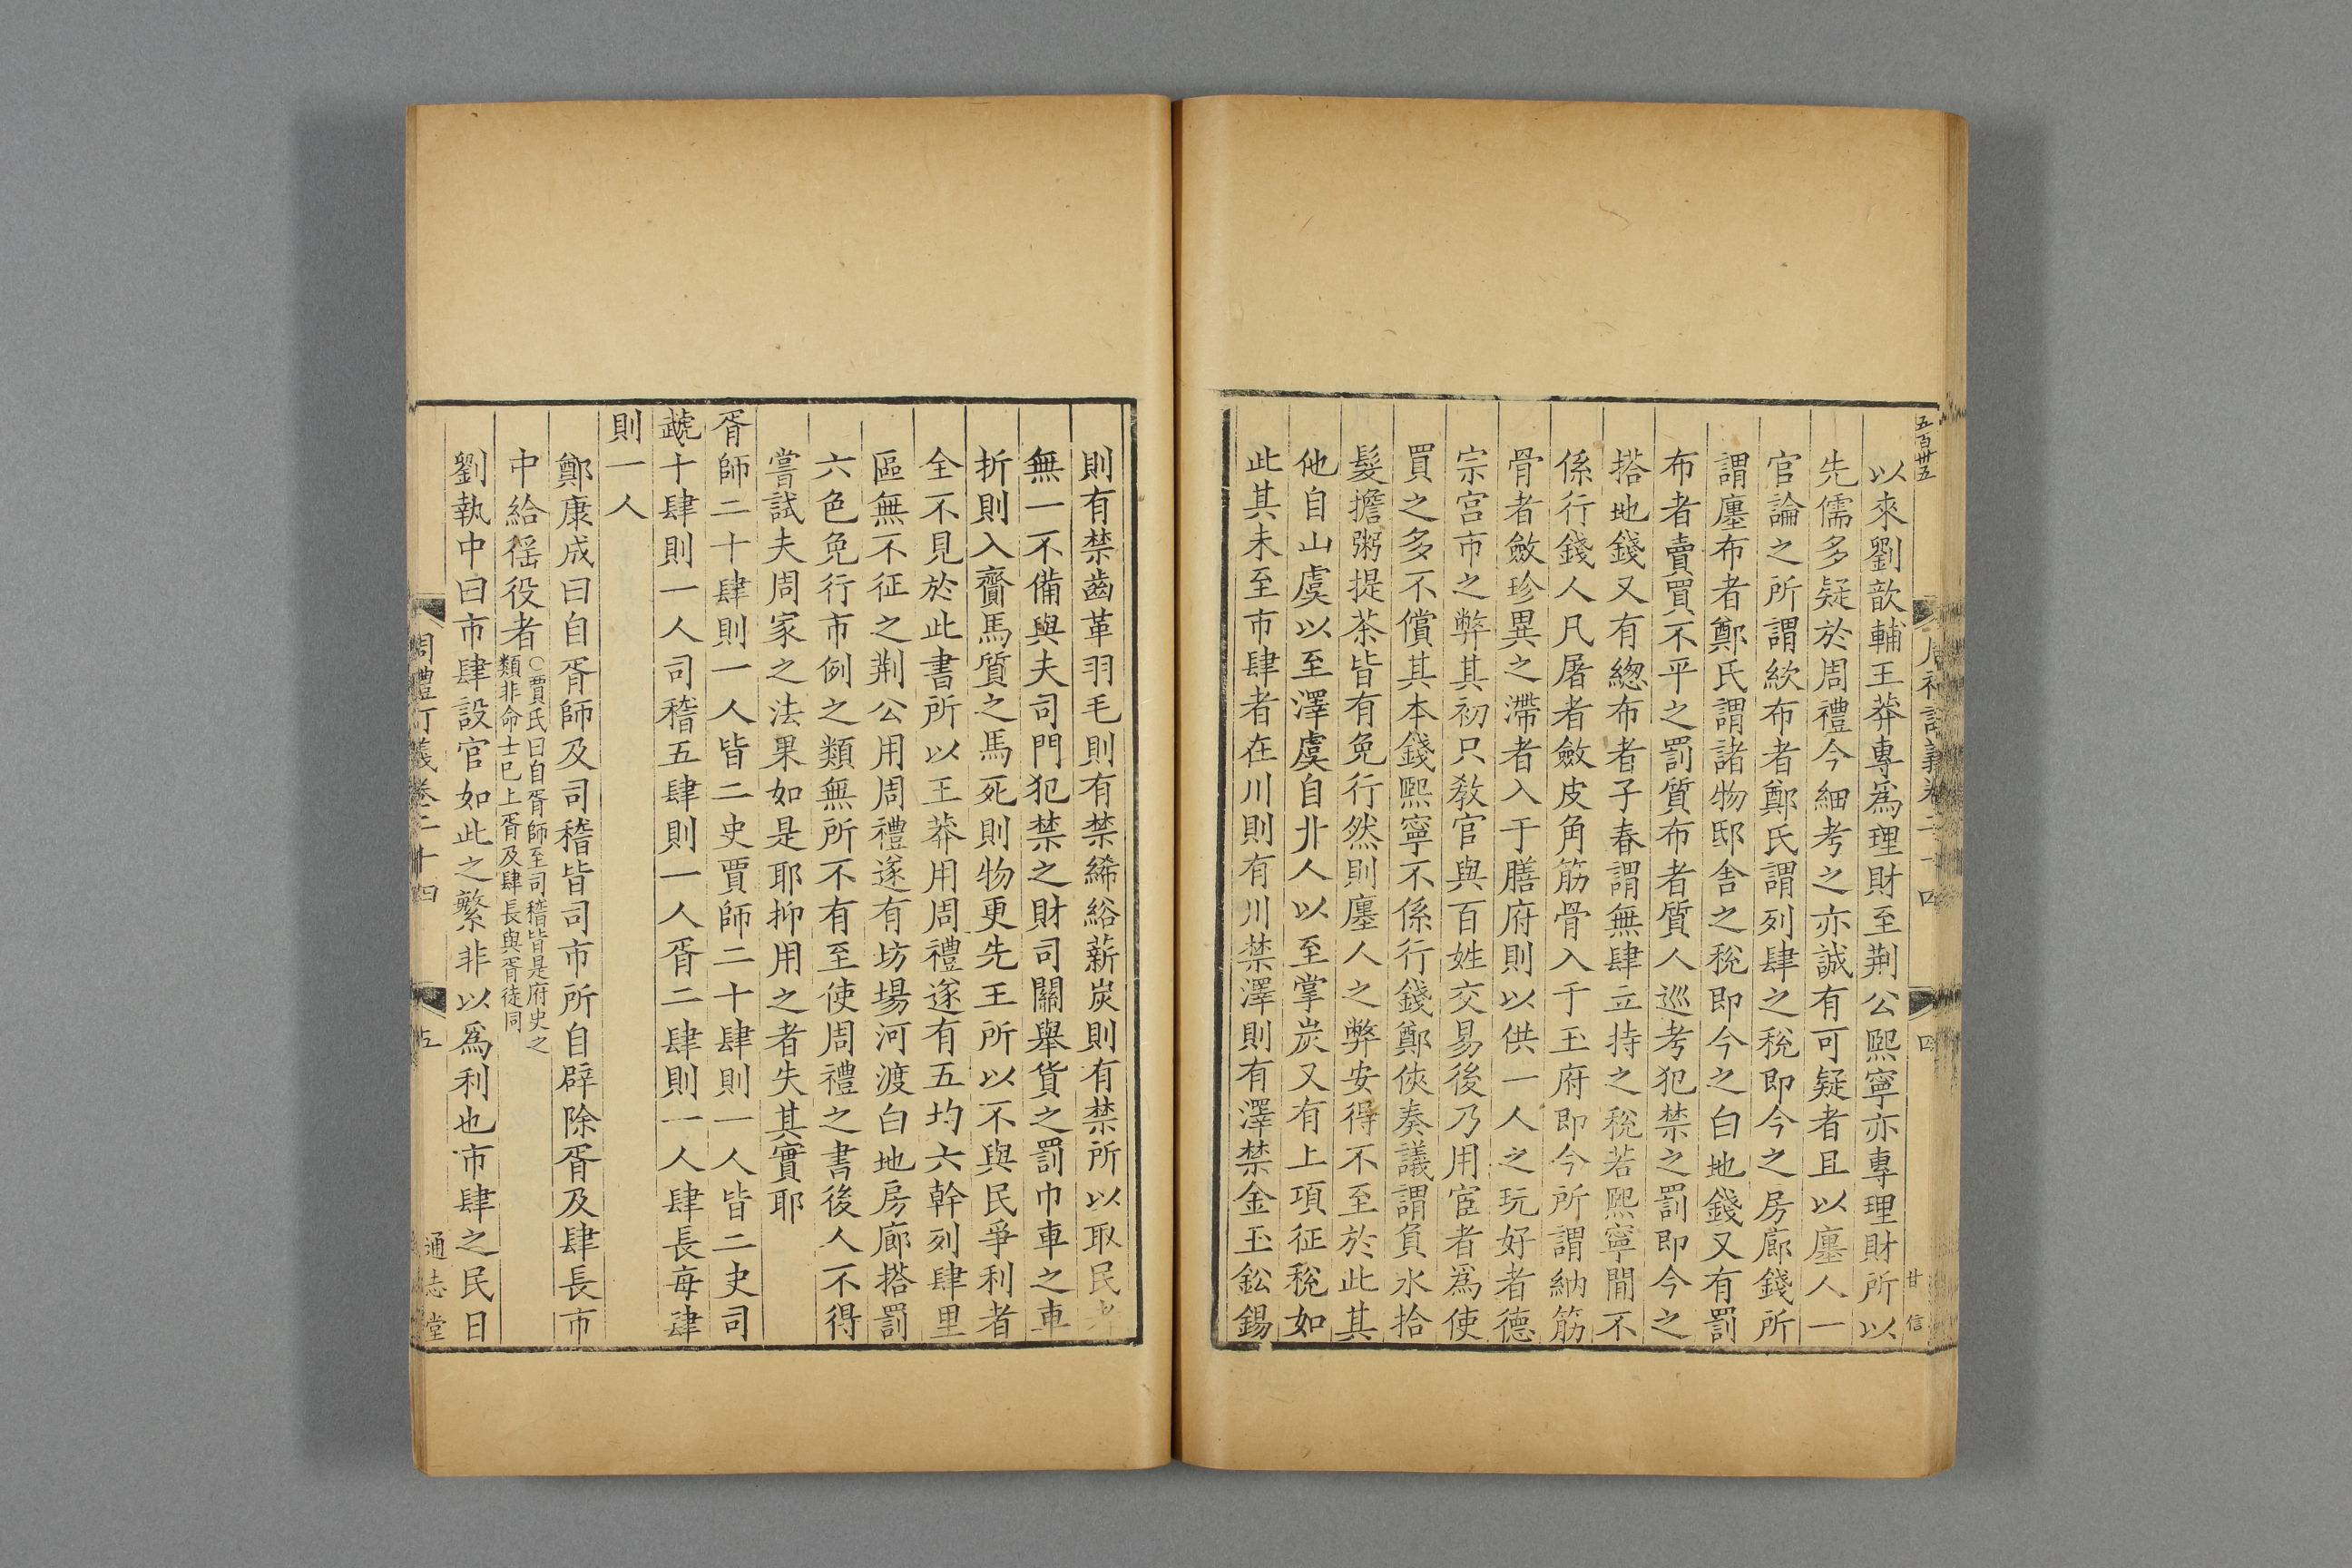 五百卅五
四
甘信
以來劉歆輔王莽專爲理財至荆公熙寧亦專理財所以
先儒多疑於周禮今細考之亦誠有可疑者且以廛人一
官論之所謂絘布者鄭氏謂列肆之稅即今之房廊錢所
謂廛布者鄭氏謂諸物邸舎之稅即今之白地錢又有罰
布者賣買不平之罰質布者質人巡考犯禁之罰即今之
搭地錢又有緫布者子春謂無肆立持之稅若熙寧間不
係行錢人凡屠者斂皮角筋骨入于玉府即今所謂納筋
骨者斂珍異之滯者入于膳府則以供一人之玩好者德
宗宫市之弊其初只敎官與百姓交易後乃用宦者爲使
買之多不償其本錢熙寧不係行錢鄭俠奏議謂負水拾
髮擔粥提茶皆有免行然則廛人之弊安得不至於此其
他自山虞以至澤虞自丱人以至掌炭又有上項征稅如
此其未至市肆者在川則有川禁澤則有澤禁金玉鈆錫
則有禁齒革羽毛則有禁絺綌薪炭則有禁所以取民者
無一不備與夫司門犯禁之財司關舉貨之罰巾車之車
折則入齎馬質之馬死則物更先王所以不與民爭利者
全不見於此書所以王莽用周禮遂有五均六幹列肆里
區無不征之荆公用周禮遂有坊場河渡白地房廊搭罰
六色免行市例之類無所不有至使周禮之書後人不得
嘗試夫周家之法果如是耶抑用之者失其實耶
胥師二十肆則一人皆二史賈師二十肆則一人皆二史司
虣十肆則一人司稽五肆則一人胥二肆則一人肆長每肆
則一人
鄭康成曰自胥師及司稽皆司市所自辟除胥及肆長市
中給徭役者○賈氏曰自胥師至司稽皆是府史之
類非命士已上胥及肆長與胥徒同
劉執中曰市肆設官如此之繁非以爲利也市肆之民日
周禮訂義卷二十四
五
通志堂